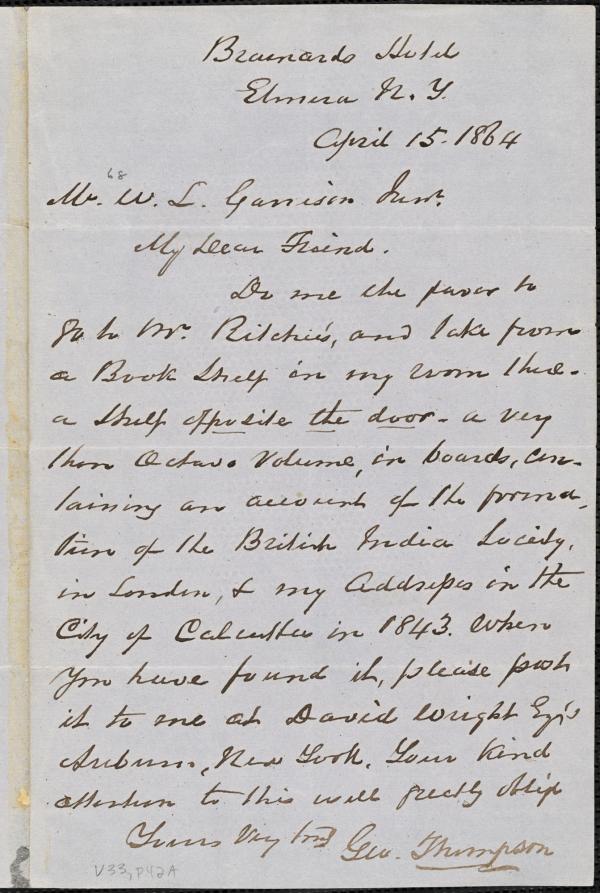 Brainards Hotel
Elmira N. Y.
April 15. 1864
68
Mr. W. L. Garrison Junr.
My Dear Friend.
Do me the favor to
go to Mr. Ritchie's, and take from
a Book Shelf in my room there -
a Shelf opposite the door - a very
thin Octavo Volume, in boards, con-
taining an account of the forma-
tion of the British India Society,
in London, & my Addresses in the
City of Calcutta in 1843. When
you have found it, please post
it to me at David Wright Esq's
Auburn, New York. Your kind
attention to this will greatly oblige
Yours Very truly
Geo. Thompson
V33, P42A